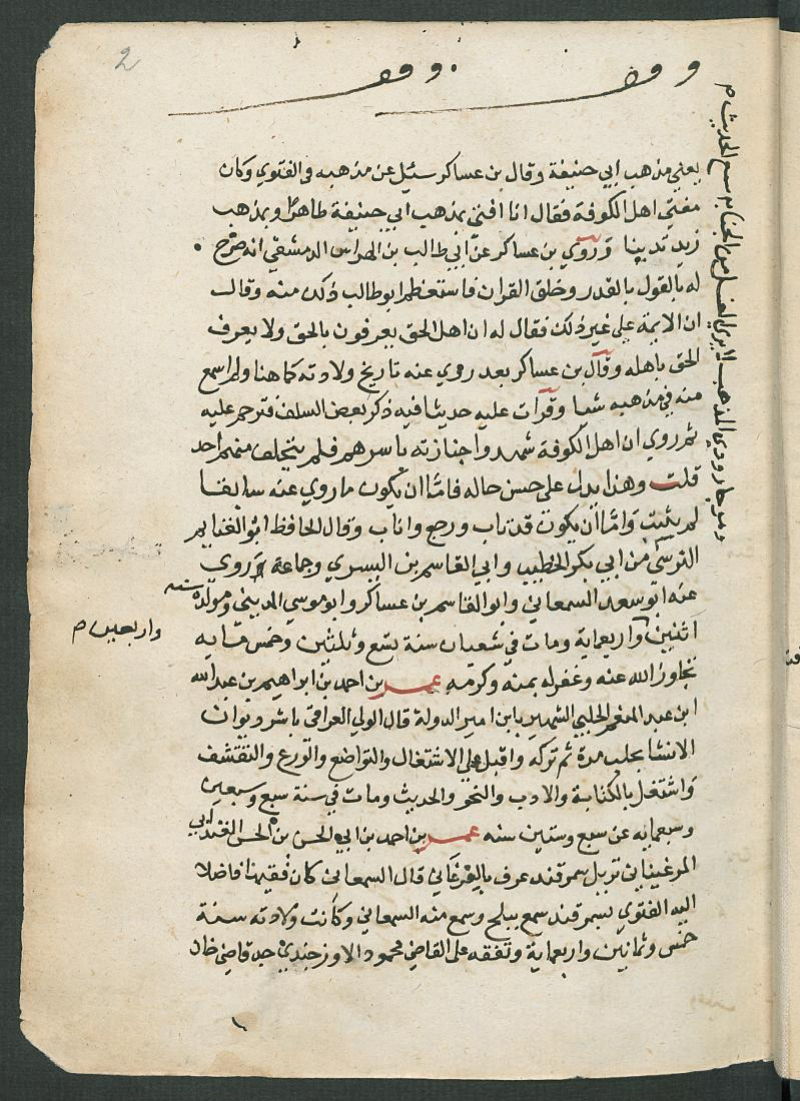 2
وقف وقف
يعني مذهب ابي حنيفة وقال بن عساكر سئيل عن مذهبه في الفتوي وكان
مفتي اهل الكوفة فقال انا افتي بمذهب ابي حنيفة ظاهرا وبمذهب
زيد تدينا وروي بن عساكر عن ابي طالب بن الهراس الدمشقي انه صرح
له بالقول بالقدر وخلق القران فاستعظم ابو طالب ذلك منه وقال
ان الايمة علي غير ذلك فقال له ان اهل الحق يعرفون بالحق ولا يعرف
الحق باهله وقال بن عساكر بعد روي عنه تاريخ ولادته كما هنا ولم اسمع
منه في مذهبه شيا وقرات عليه حديثا فيه ذكر بعض السلف فترحم عليه
ثم روي ان اهل الكوفة شهدوا جنازته باسرهم فلم يتخلف منهم احد
قلت وهذا يدل علي حسن حاله فاما ان يكون ما روي عنه سابقا
لم يثبت واما ان يكون قد تاب ورجع واناب وقال الحافظ ابو الغنايم
النرسي من ابي بكر الخطيب وابي القاسم بن البسري وجماعة وروي
عنه ابو سعد السمعاني وابو القاسم بن عساكر وابو موسي المديني ومولده سنه
اثنين واربعماية ومات في شعبان سنة تسع وثلثين وخمس ماية
تجاوز الله عنه وغفر له بمنه وكرمه عمر بن احمد بن ابراهيم بن عبد الله
ابن عبد المنعم الحلبي الشهير بابن امير الدولة قال الولي العراقي باشر ديوان
الانشا بحلب مدة ثم تركه واقبل علي الاشتغال والتواضع والورع والتقشف
واشتغل بالكتابة والادب والنحو والحديث ومات في سنة سبع وسبعين
وسبعمايه عن سبع وستين سنه عمر بن احمد بن ابي الحسن بن الحسن الغندابي
المرغيناني نزيل سمرقند عرف بالفرغاني قال السمعاني كان فقيها فاضلا
اليه الفتوي بسمرقند سمع ببلح وسمع منه السمعاني وكانت ولادته سنة
خمس وثمانين واربعماية وتفقه علي القاضي محمود الاوزجندي جد قاضي خان
واربعين م
وهو جارودي المذهب لا يري الغسل من الجنابه سمع الحديث م